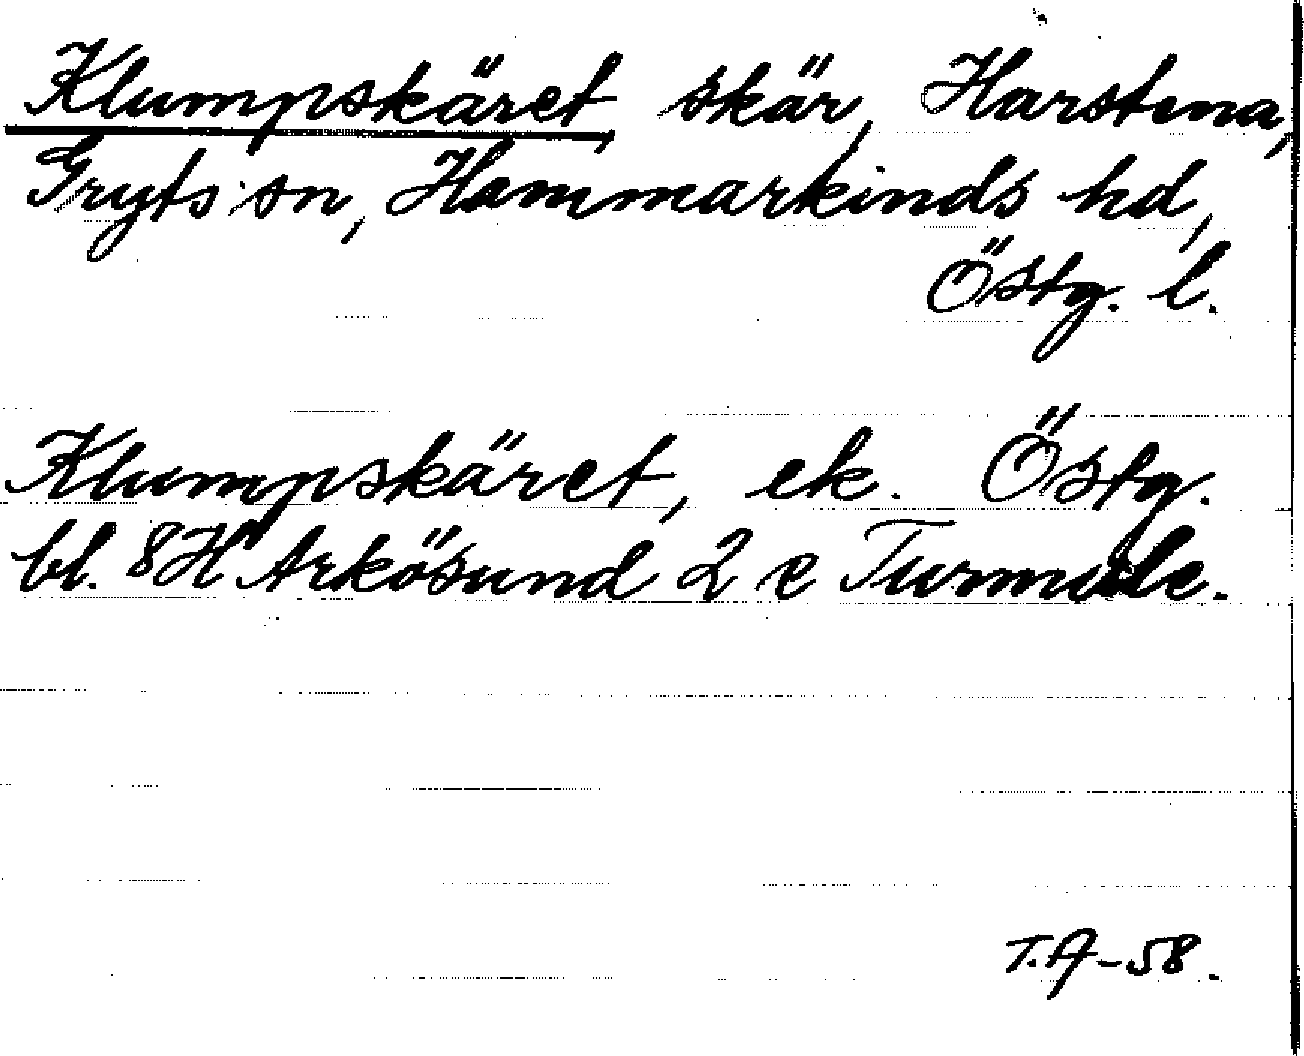 Klumpskäret, skär, Harstena,
Gryts sn, Hammarkinds hd,
Östg. l.
Klumpskäret, ek. Östg.
bl. 8H Arkösund 2 c Turmulc.
T.A-58.